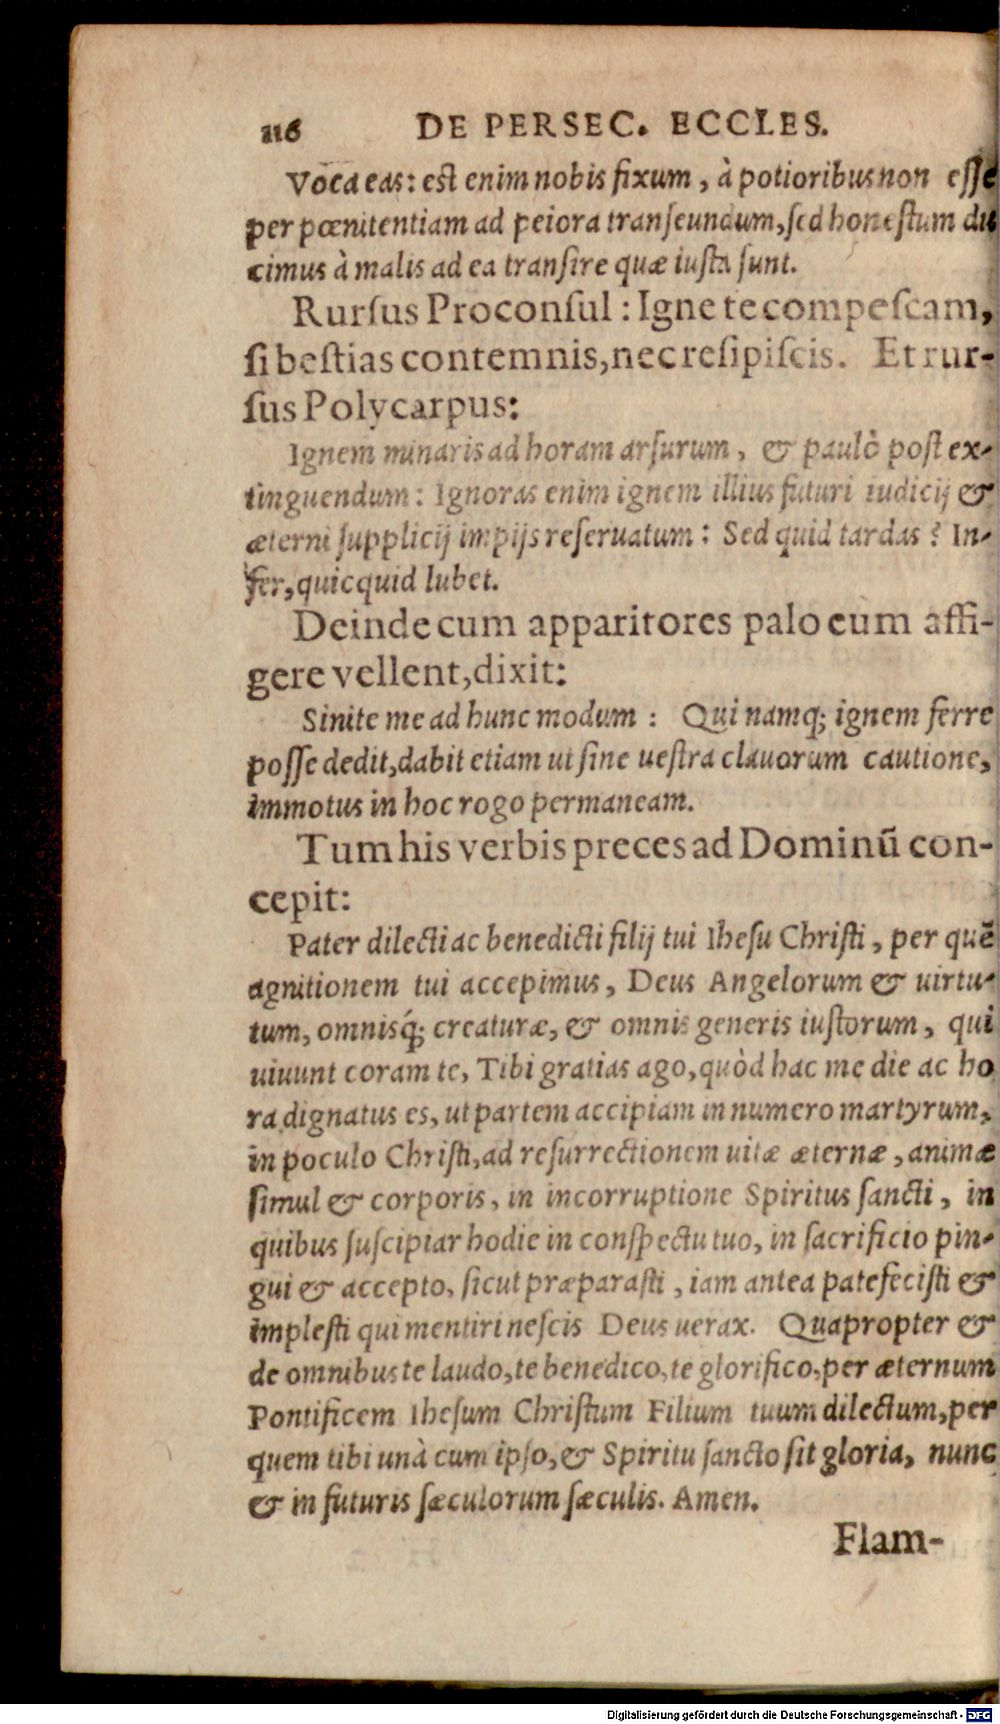 116 DE PERSEC. ECCLES.
Voca eas: est enim nobis fixum, à potioribus non esse
per pœnitentiam ad peiora transeundum, sed honestum du
cimus à malis ad ea transire quæ iusta sunt.
Rursus Proconsul: Igne te compescam,
si bestias contemnis, nec resipiscis. Et rur-
sus Polycarpus:
Ignem minaris ad horam arsurum, & paulò post ex-
tinguendum: Ignoras enim ignem illius futuri iudicij &
æterni supplicij impijs reseruatum: Sed quid tardas? In-
fer, quicquid lubet.
Deinde cum apparitores palo eum affi-
gere vellent, dixit:
Sinite me ad hunc modum: Qui namq; ignem ferre
posse dedit, dabit etiam ut sine uestra clauorum cautione,
immotus in hoc rogo permaneam.
Tum his verbis preces ad Dominū con-
cepit:
Pater dilecti ac benedicti filij tui Ihesu Christi, per quē
agnitionem tui accepimus, Deus Angelorum & uirtu-
tum, omnisq́; creaturæ, & omnis generis iustorum, qui
uiuunt coram te, Tibi gratias ago, quòd hac me die ac ho
ra dignatus es, ut partem accipiam in numero martyrum,
in poculo Christi, ad resurrectionem uitæ æternæ, animæ
simul & corporis, in incorruptione Spiritus sancti, in
quibus suscipiar hodie in conspectu tuo, in sacrificio pin-
gui & accepto, sicut præparasti, iam antea patefecisti &
implesti qui mentiri nescis Deus uerax. Quapropter &
de omnibus te laudo, te benedico, te glorifico, per æternum
Pontificem Ihesum Christum Filium tuum dilectum, per
quem tibi unà cum ipso, & Spiritu sancto sit gloria, nunc
& in futuris sæculorum sæculis. Amen.
Flam-
Digitalisierung gefördert durch die Deutsche Forschungsgemeinschaft - DFG